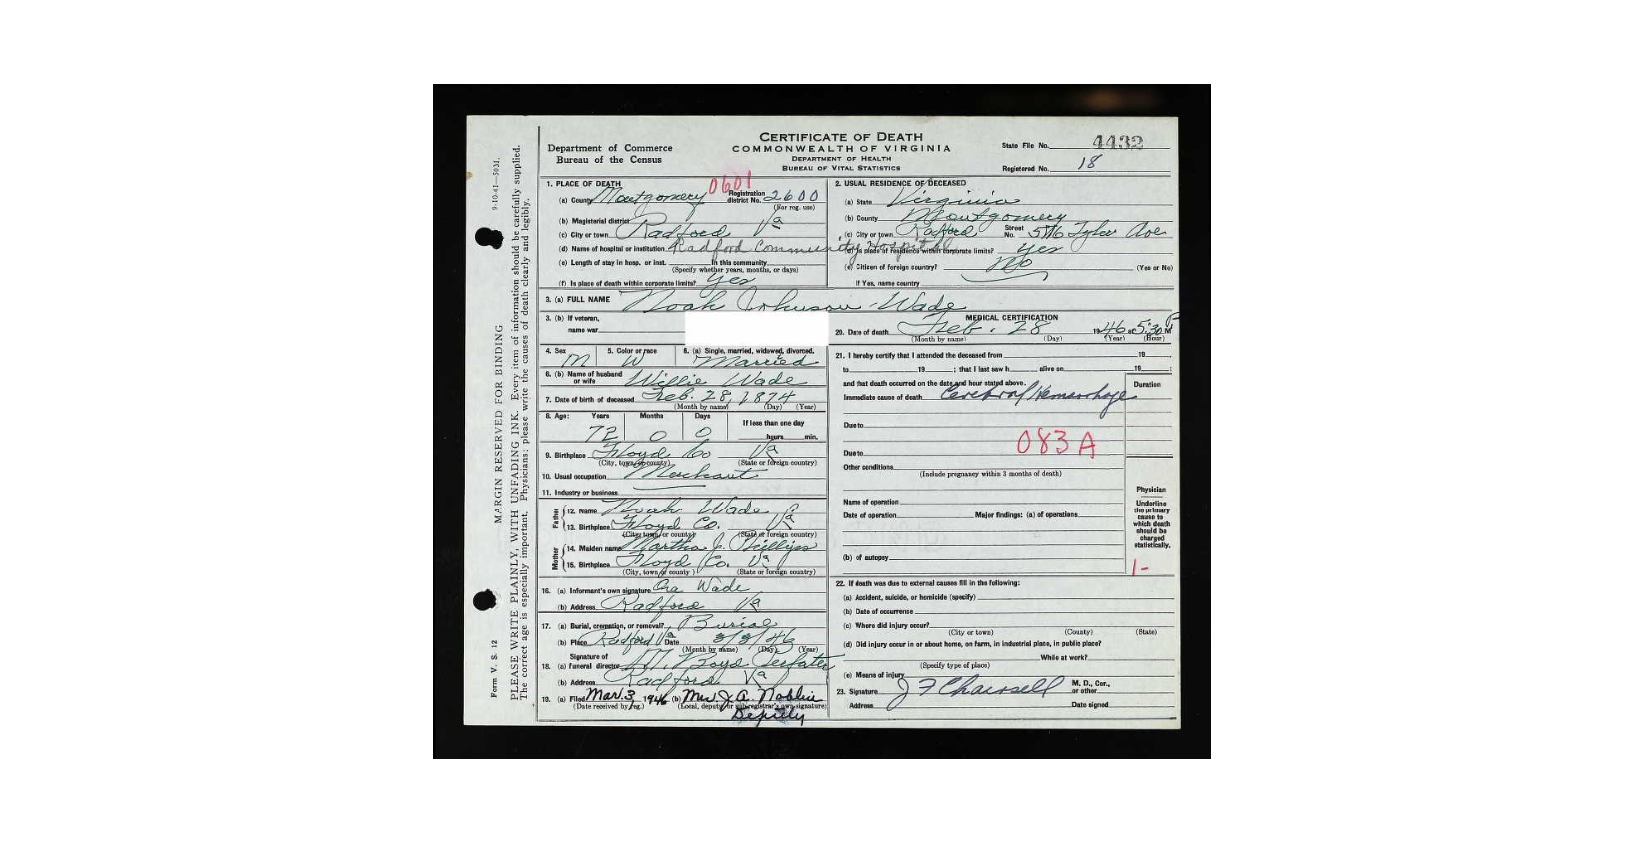 CERTIFICATE OF DEATH
COMMONWEALTH OF VIRGINIA
DEPARTMENT OF HEALTH
BUREAU OF VITAL STATISTICS
Department of Commerce
Bureau of the Census
State File No. 4432
Registered No. 18
1. PLACE OF DEATH 0601
(a) County Montgomery Registration district No. 2600
(For reg. use)
(b) Magisterial district
(c) City or town Radford Va
(d) Name of hospital or institution Radford Community Hospital
(e) Length of stay in hosp. or inst. In this community
(Specify whether years, months, or days)
(f) Is place of death within corporate limits? Yes
2. USUAL RESIDENCE OF DECEASED
(a) State Virginia
(b) County Montgomery
(c) City or town Radford Street No. Tyler Ave
(d) Is place of residence within corporate limits? Yes
(e) Citizen of foreign country? No (Yes or No)
If Yes, name country
3. (a) FULL NAME Noah Johnson Wade
3. (b) If veteran,
name war
4. Sex M 5. Color or race W 6. (a) Single, married, widowed, divorced. Married
6. (b) Name of husband or wife Willie Wade
7. Date of birth of deceased Feb. 28, 1874
(Month by name) (Day) (Year)
8. Age: Years Months Days If less than one day
72 0 0 hours min.
9. Birthplace Floyd Co Va
(City, town, or county) (State or foreign country)
10. Usual occupation Merchant
11. Industry or business
Father
12. Name Noah Wade
13. Birthplace Floyd Co. Va
(City, town, or county) (State or foreign country)
Mother
14. Maiden name Martha J. Phillips
15. Birthplace Floyd Co. Va
(City, town, or county) (State or foreign country)
16. (a) Informant's own signature Ora Wade
(b) Address Radford Va
17. (a) Burial, cremation, or removal? Burial
(b) Place Radford Va Date 3/3/46
(Month by name) (Day) (Year)
18. Signature of
(a) funeral director Boyd
(b) Address Radford Va
19. (a) Filed Mar. 3, 1946 (b) Mrs. J. A. Noblin
(Date received by reg.) (Local, deputy or sub-registrar's own signature)
Deputy
MEDICAL CERTIFICATION
20. Date of death Feb. 28 1946 at 5:30 P M
(Month by name) (Day) (Year) (Hour)
21. I hereby certify that I attended the deceased from 19
to 19 ; that I last saw h alive on 19 ;
and that death occurred on the date and hour stated above.
Duration
Immediate cause of death Cerebral Hemorrhage
Due to
083A
Due to
Other conditions
(Include pregnancy within 3 months of death)
Name of operation
Date of operation Major findings: (a) of operations
(b) of autopsy
Physician
Underline
the primary
cause to
which death
should be
charged
statistically.
1-
22. If death was due to external causes fill in the following:
(a) Accident, suicide, or homicide (specify)
(b) Date of occurrence
(c) Where did injury occur?
(City or town) (County) (State)
(d) Did injury occur in or about home, on farm, in industrial place, in public place?
While at work?
(Specify type of place)
(e) Means of injury
23. Signature M. D., Cor., or other
Address Date signed
Form V. S. 12
MARGIN RESERVED FOR BINDING
9-10-41—50M.
PLEASE WRITE PLAINLY, WITH UNFADING INK. Every item of information should be carefully supplied.
The correct age is especially important. Physicians: please write the causes of death clearly and legibly.